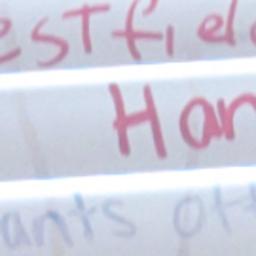 estfiel
Han
ants off